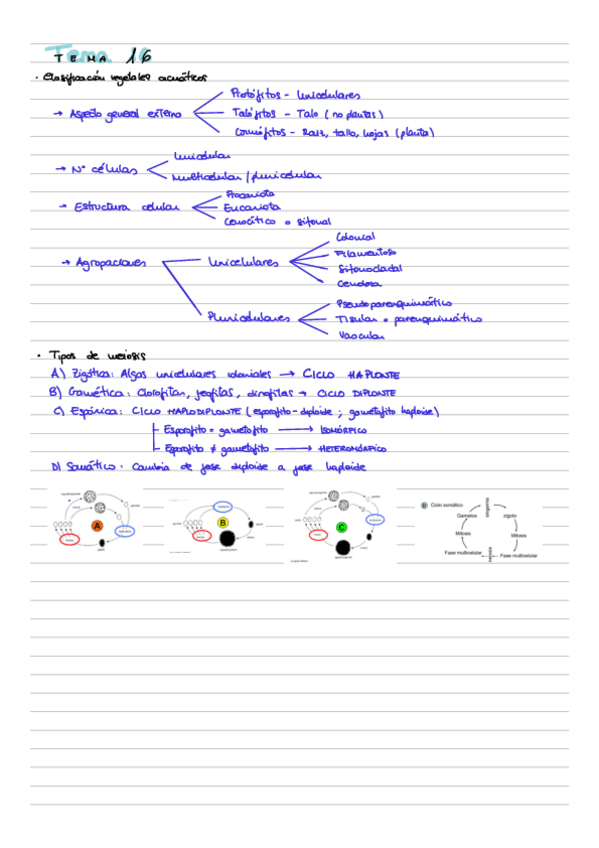 TEMA 16
· Clasificación vegetales acuáticos
→ Aspecto general externo
Protófitos - Unicelulares
Talófitos - Talo (no plantas)
Cormófitos - Raíz, tallo, hojas (planta)
→ Nº células
Unicelular
Multicelular / pluricelular
→ Estructura celular
Procariota
Eucariota
Cenocítico o sifonal
→ Agrupaciones
Unicelulares
Colonial
Filamentoso
Sifonocladal
Pluricelulares
Pseudoparenquimático
Tisular o parenquimático
Vascular
· Tipos de meiosis
A) Zigótica: Algas unicelulares coloniales → CICLO HAPLONTE
B) Gamética: Clorofitas, feofitas, dinofitas → CICLO DIPLONTE
C) Espórica: CICLO HAPLODIPLONTE (esporofito - diploide ; gametofito haploide)
Esporofito = gametofito → ISOMÓRFICO
Esporofito ≠ gametofito → HETEROMÓRFICO
D) Somático: Cambia de fase diploide a fase haploide
A
B
C
D Ciclo somático
Gametos
singamia
zigoto
Mitosis
Mitosis
Fase multicelular
meiosis
Fase multicelular